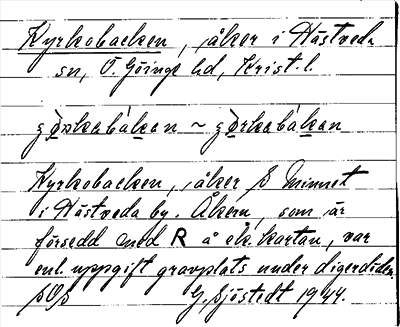 Kyrkobacken, åker i Hästveda
sn, Ö. Göinge hd, Krist. l.
Kyrkobacken, åker
i Hästveda by. Åkern, som är
försedd med R å ek. kartan, var
enl. uppgift gravplats under digerdöden.
G. Sjöstedt 1944.